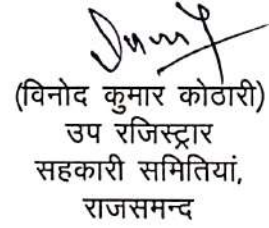 (विनोद कुमार कोठारी)
उप रजिस्ट्रार
सहकारी समितियां,
राजसमन्द